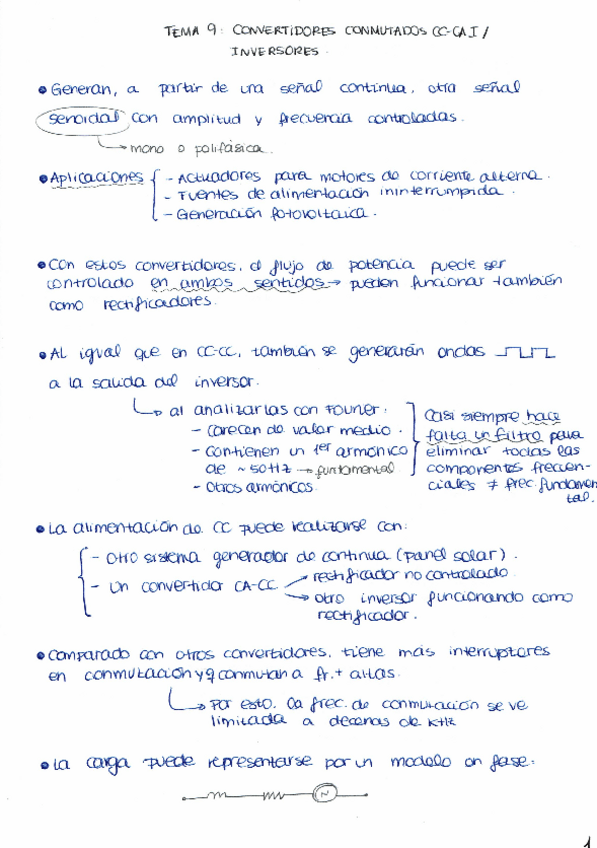 TEMA 9: CONVERTIDORES CONMUTADOS CC-CA I /
INVERSORES.
• Generan, a partir de una señal continua, otra señal
senoidal con amplitud y frecuencia controladas.
→ mono o polifásica.
• Aplicaciones { - Actuadores para motores de corriente alterna.
- Fuentes de alimentación ininterrumpida.
- Generación fotovoltaica.
• Con estos convertidores, el flujo de potencia puede ser
controlado en ambos sentidos → pueden funcionar también
como rectificadores.
• Al igual que en CC-CC, también se generarán ondas
a la salida del inversor.
↳ al analizarlas con Fourier:
- Carecen de valor medio.
- Contienen un 1er armónico
de ~50Hz → fundamental
- Otros armónicos.
Casi siempre hace
falta un filtro para
eliminar todas las
componentes frecuen-
ciales ≠ frec. fundamen
tal.
• La alimentación de CC puede realizarse con:
- Otro sistema generador de continua (panel solar).
- Un convertidor CA-CC → rectificador no controlado
→ otro inversor funcionando como
rectificador.
• Comparado con otros convertidores, tiene más interruptores
en conmutación y q conmutan a fr. + altas.
↳ Por esto, la frec. de conmutación se ve
limitada a decenas de kHz
• La carga puede representarse por un modelo en fase:
N
1